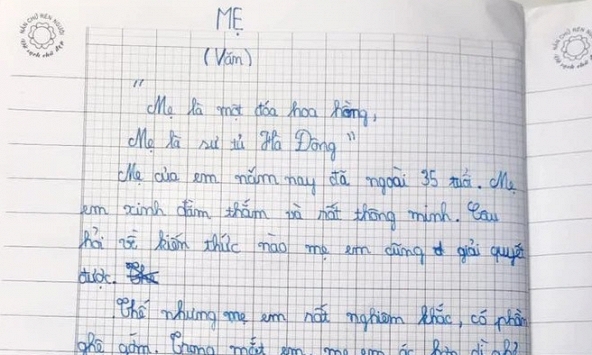 NẮN CHỮ RÈN NGƯỜI
MẸ
(Văn)
"
Mẹ là một đóa hoa hồng,
Mẹ là sư tử Hà Đông"
Mẹ của em năm nay đã ngoài 35 tuổi. Mẹ
em xinh đằm thắm và rất thông minh. Câu
hỏi về kiến thức nào mẹ em cũng giải quyết
được.
Thế nhưng mẹ em rất nghiêm khắc, có phần
ghê gớm. Trong mắt em, mẹ em ác